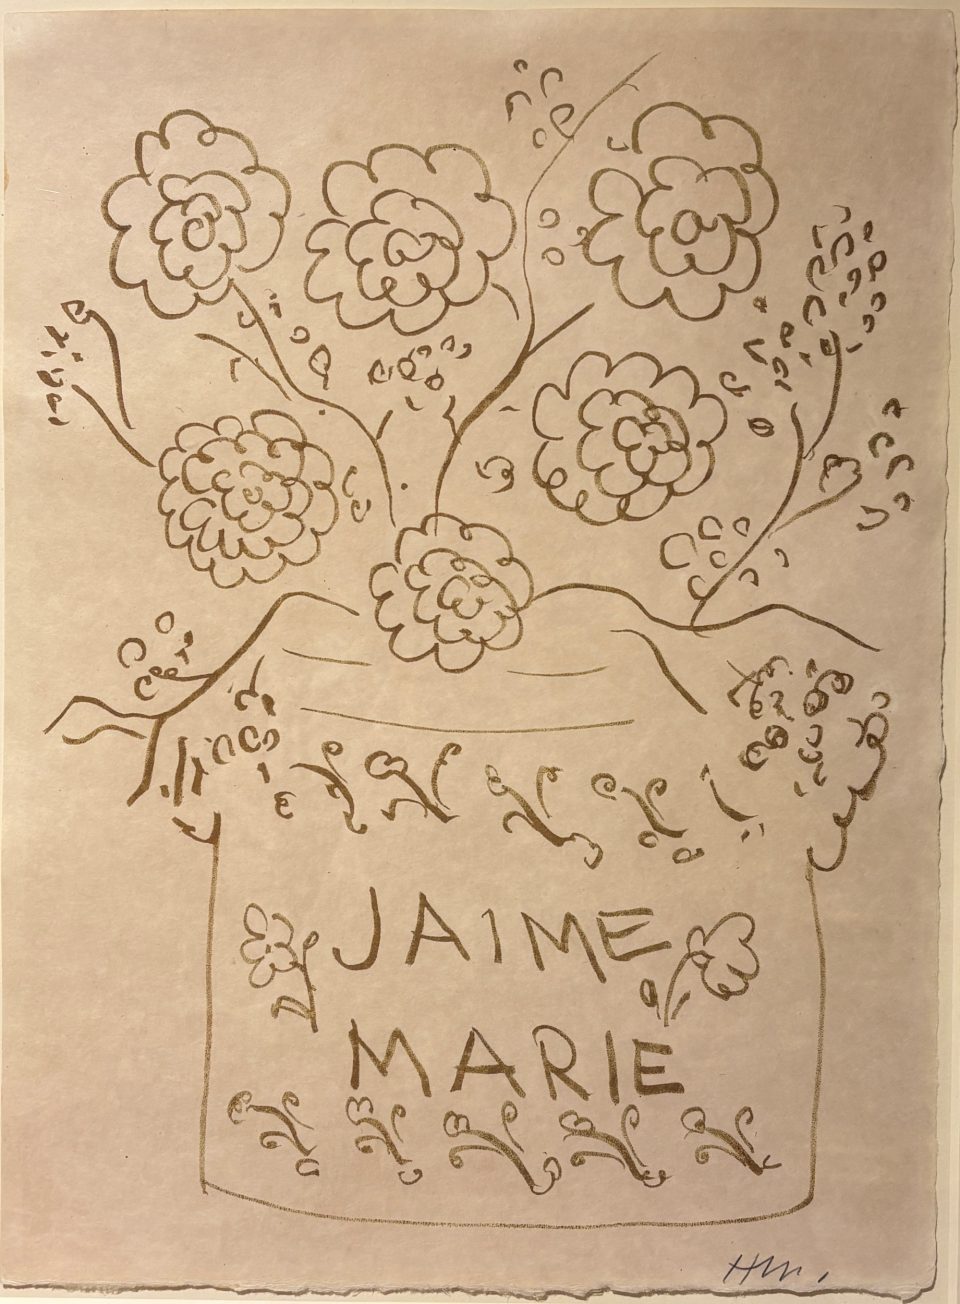 JAIME
MARIE